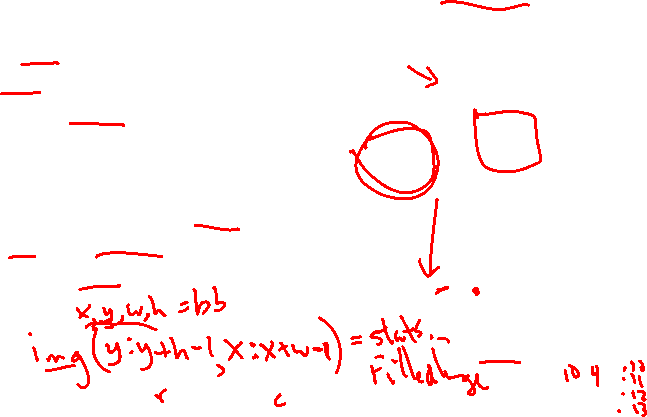 x, y, w, h = bb
img(y:y+h-1, x:x+w-1) = stats.
FilledImage
r c
10 4
:10
:11
:12
:13